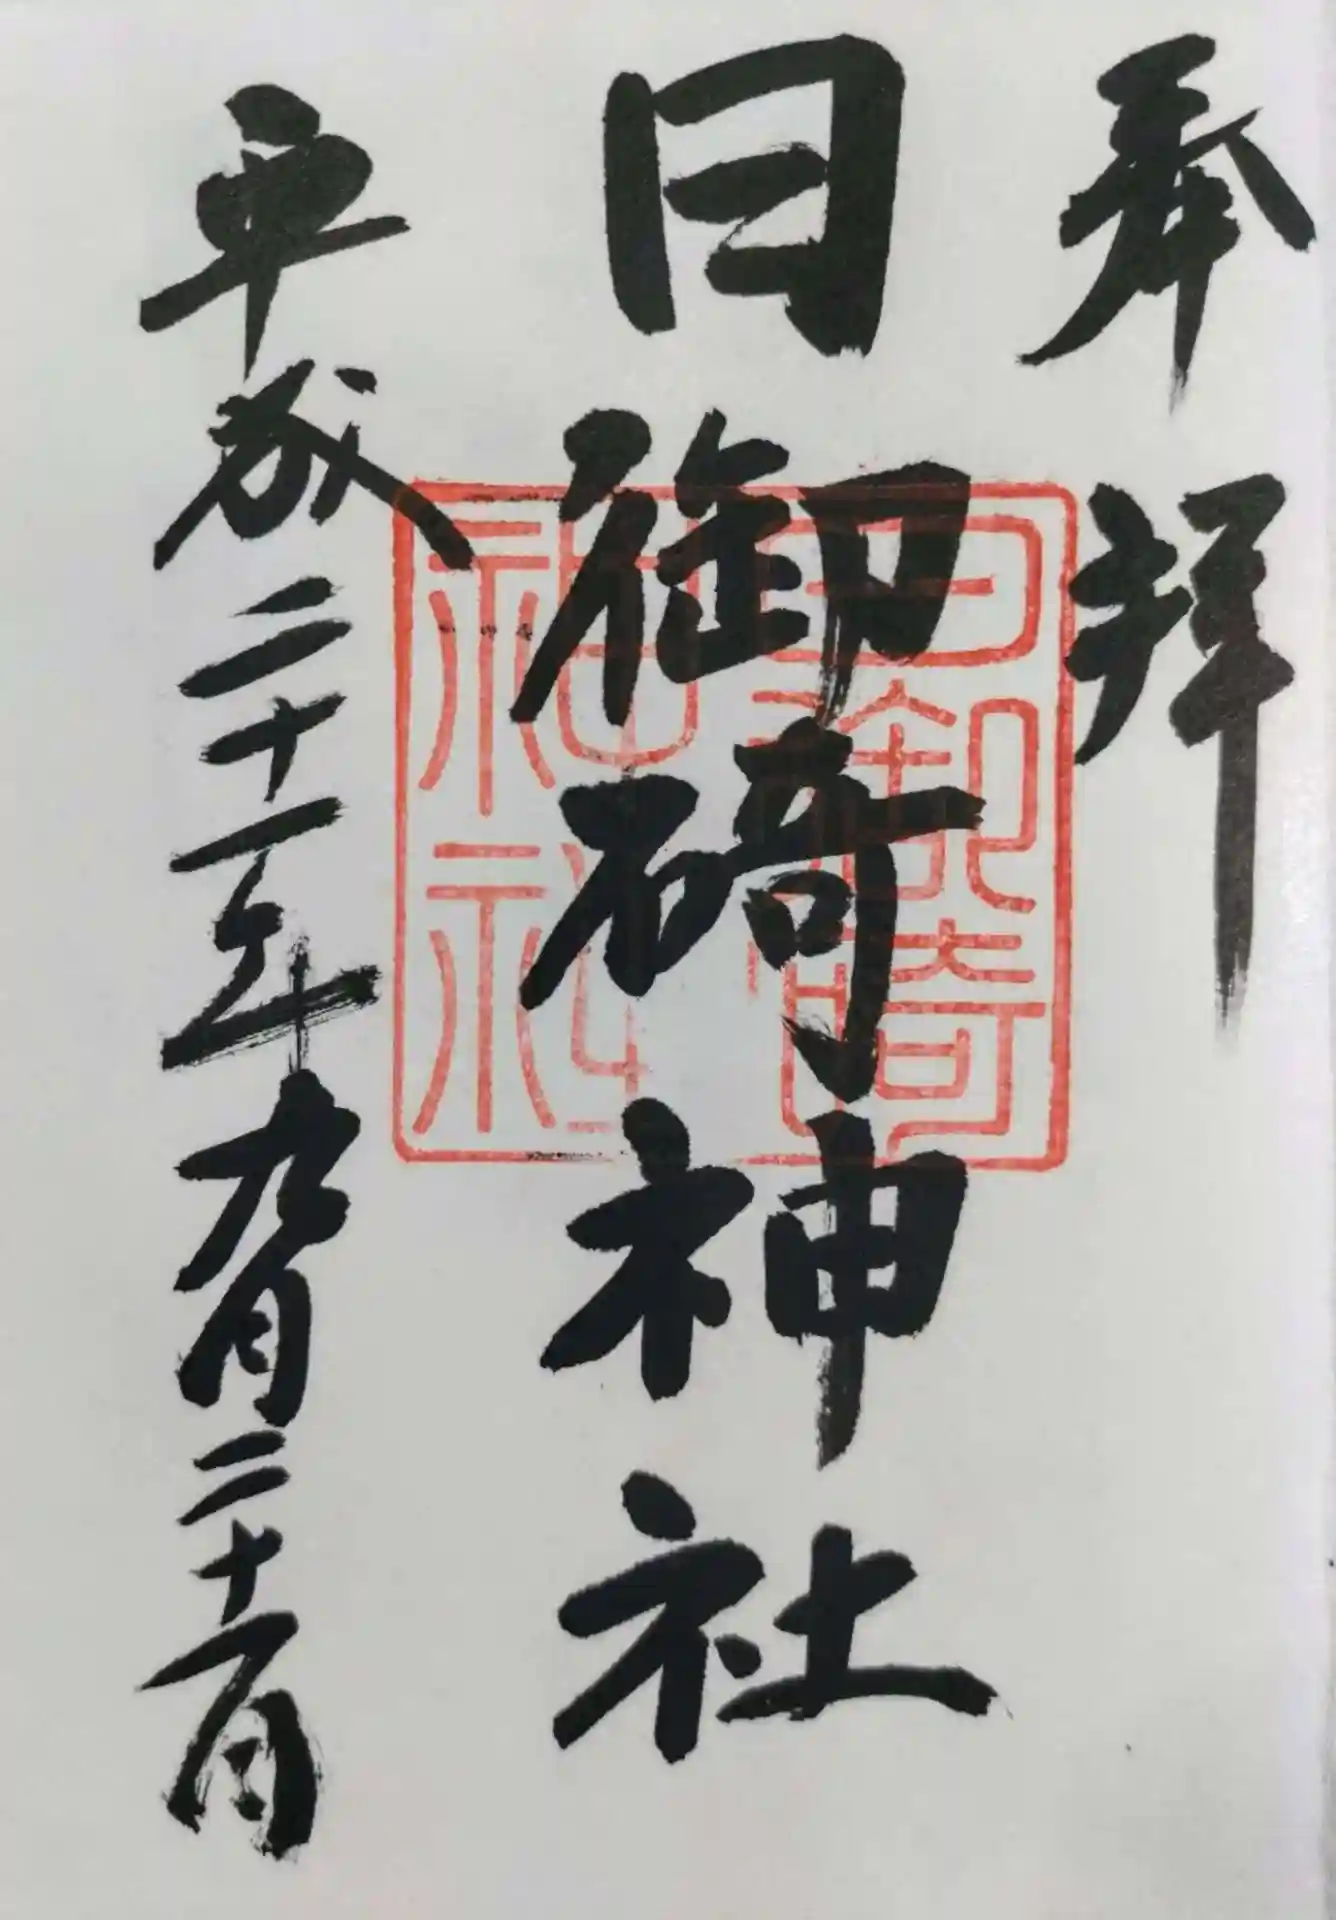 奉拝
日御碕神社
平成二十一年九月二十一日
日御碕
神社